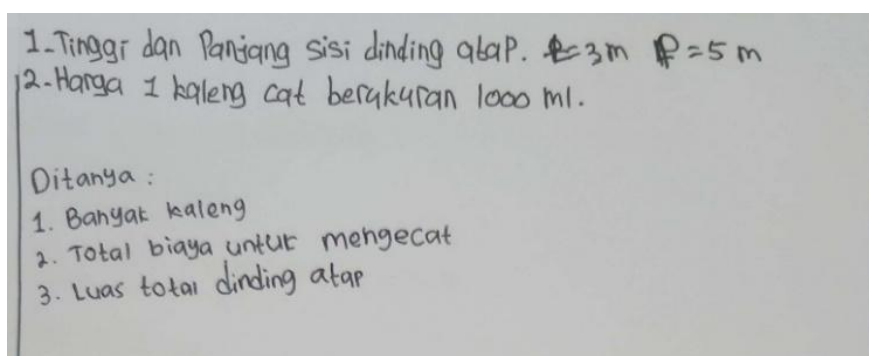 1. Tinggi dan Panjang sisi dinding atap. t=3m P=5m
2. Harga 1 kaleng cat berukuran 1000 ml.
Ditanya :
1. Banyak kaleng
2. Total biaya untuk mengecat
3. Luas total dinding atap